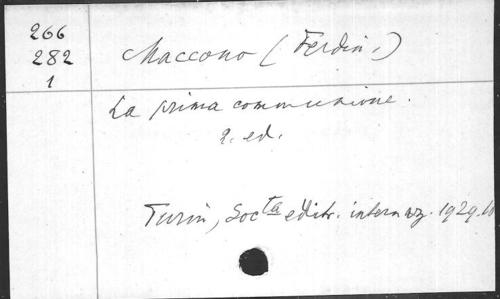 266
282
1
Maccono (Ferdin.)
La prima communione.
2. ed.
Turin, Socta editr. internaz. 1929.